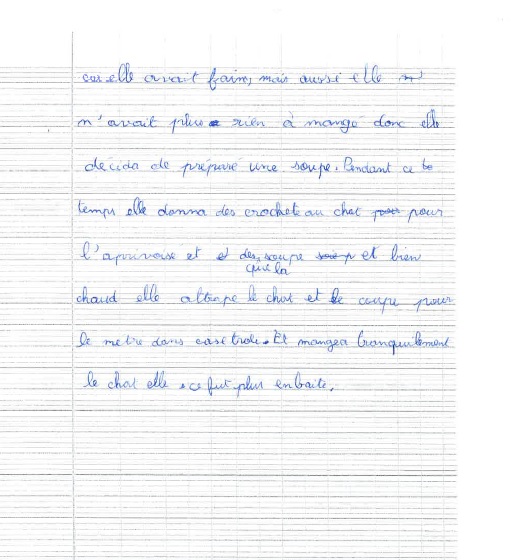 car elle avait faim, mais aussi elle
n'avait plus rien à mangé donc elle
décida de préparé une soupe. Pendant ce
temps elle donna des crochete au chat pour
l'aprivoisé et des soupe et bien
que la
chaud elle attrape le chat et le coupe pour
le metre dans casetrole. Et mangea tranquilement
le chat elle ce fut plus embaité.